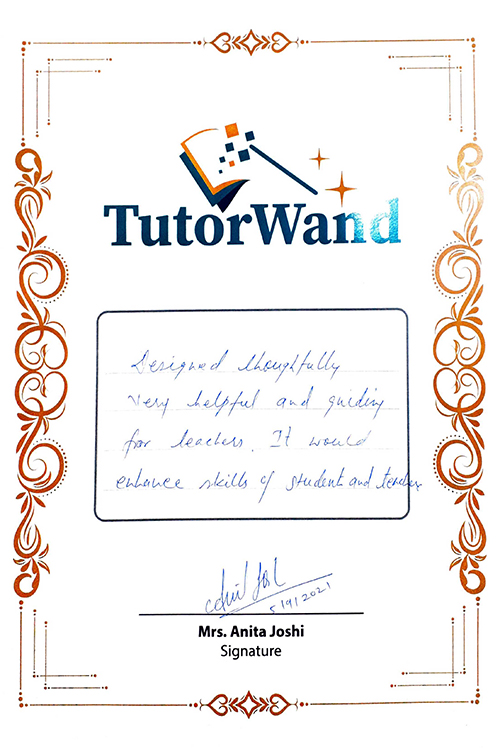 TutorWand
Designed thoughtfully
Very helpful and guiding
for teachers. It would
enhance skills of student and teacher
5/9/2021
Mrs. Anita Joshi
Signature